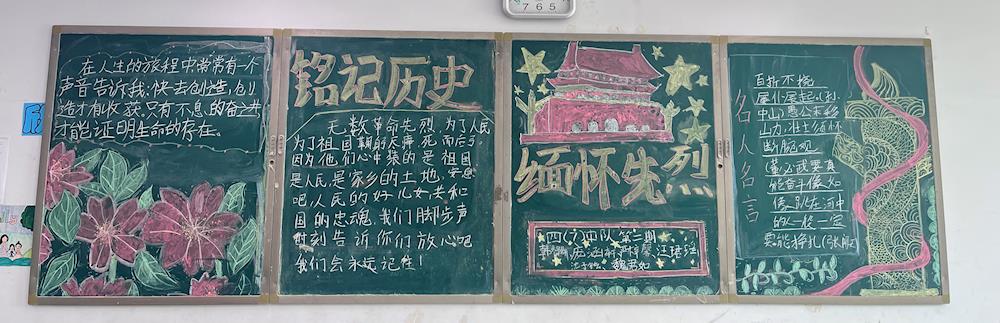 在人生的旅程中常常有一个
声音告诉我:快去创造,创
造才有收获.只有不息的奋进
才能证明生命的存在。
铭记历史
无数革命先烈,为了人民
为了祖国 死而后
因为他们心中装的是祖国
是人民,是家乡的土地,安息
吧,人民的好儿女共和
国的忠魂,我们脚步声
时刻告诉你们放心吧
我们会永远记住!
缅怀先烈
四(7)中队第二期
魏君如
名人名言
百折不挠
屡仆屡起
中山 愚公未移
山力,壮士须怀
断腕观
要真
能奋斗
在河中
的 一定
要能挣扎
7 6 5